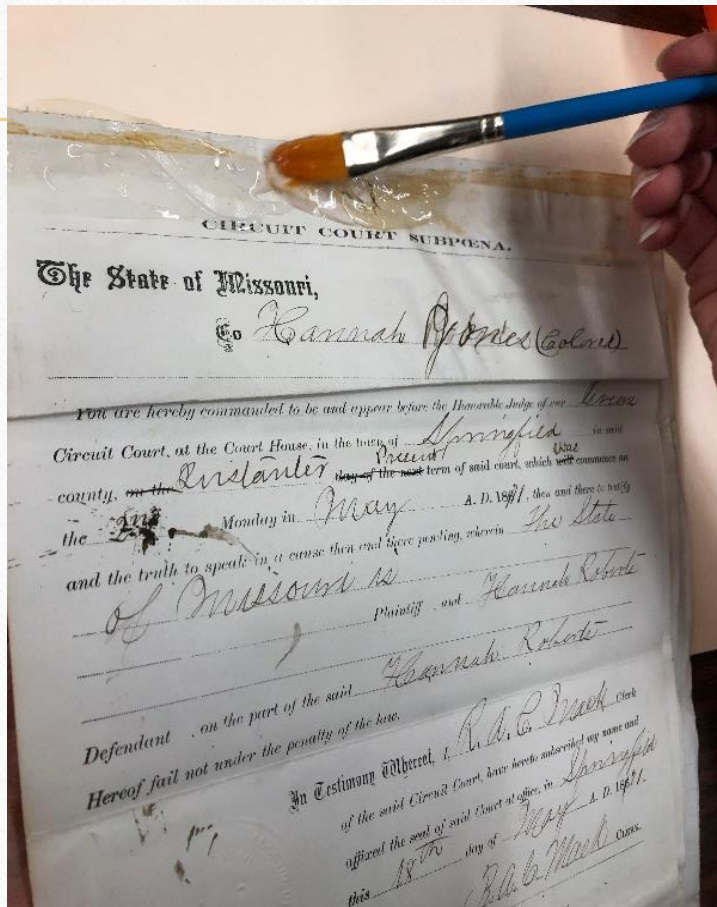 CIRCUIT COURT SUBPŒNA.
The State of Missouri,
To Hannah Jones (Colored)
You are hereby commanded to be and appear before the Honorable Judge of our Greene
Circuit Court, at the Court House, in the town of Springfield in said
county, on the Instanter day of the next Present term of said court, which will was commence on
the 2nd Monday in May A. D. 1871, then and there to testify
and the truth to speak in a cause then and there pending, wherein The State
of Missouri is
Plaintiff and Hannah Roberts
Defendant , on the part of the said Hannah Roberts
Hereof fail not under the penalty of the law.
In Testimony Whereof, I, R. A. C. Mack Clerk
of the said Circuit Court, have hereto subscribed my name and
affixed the seal of said Court at office, in Springfield
this 18th day of May A. D. 1871.
R. A. C. Mack Clerk.